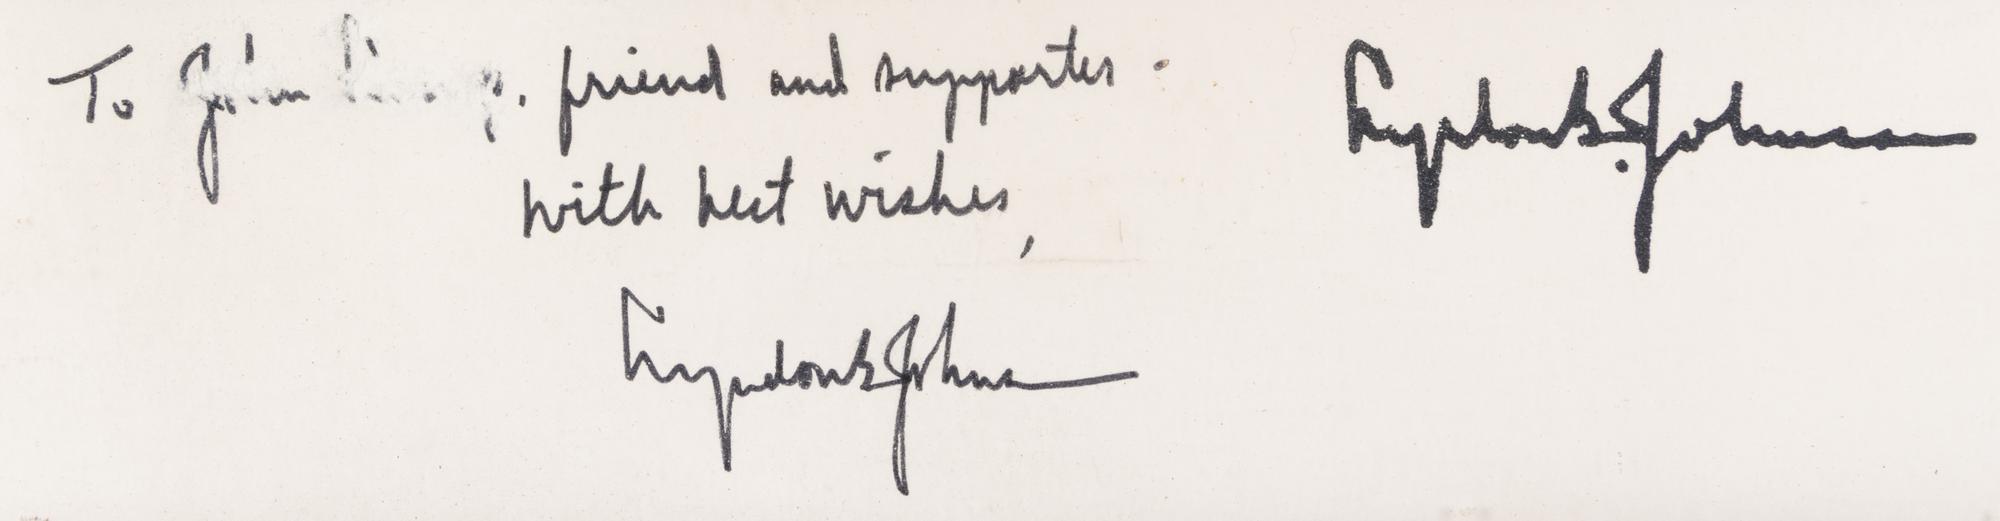 To friend and supporter -
Lyndon B. Johnson
with best wishes,
Lyndon B Johnson